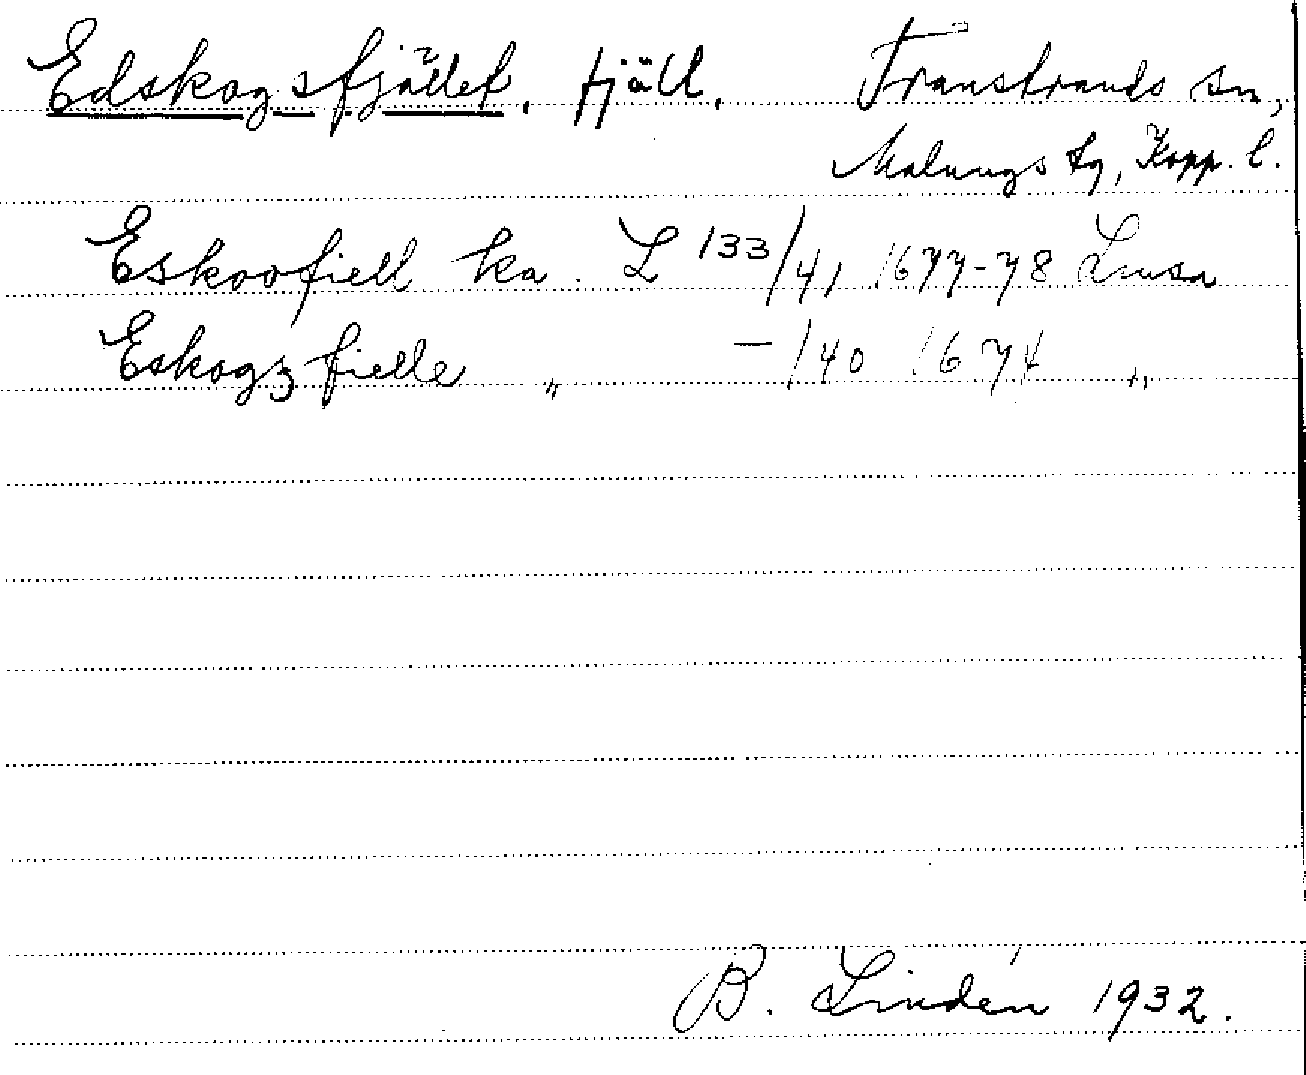 Edskogsfjället, fjäll. Transtrands sn,
Malungs tg, Kopp. l.
Eskoofiell ka. L 133/41 1677-78 Lmsa
Eskogz fielle " —/40 1674 "
B. Lindén 1932.